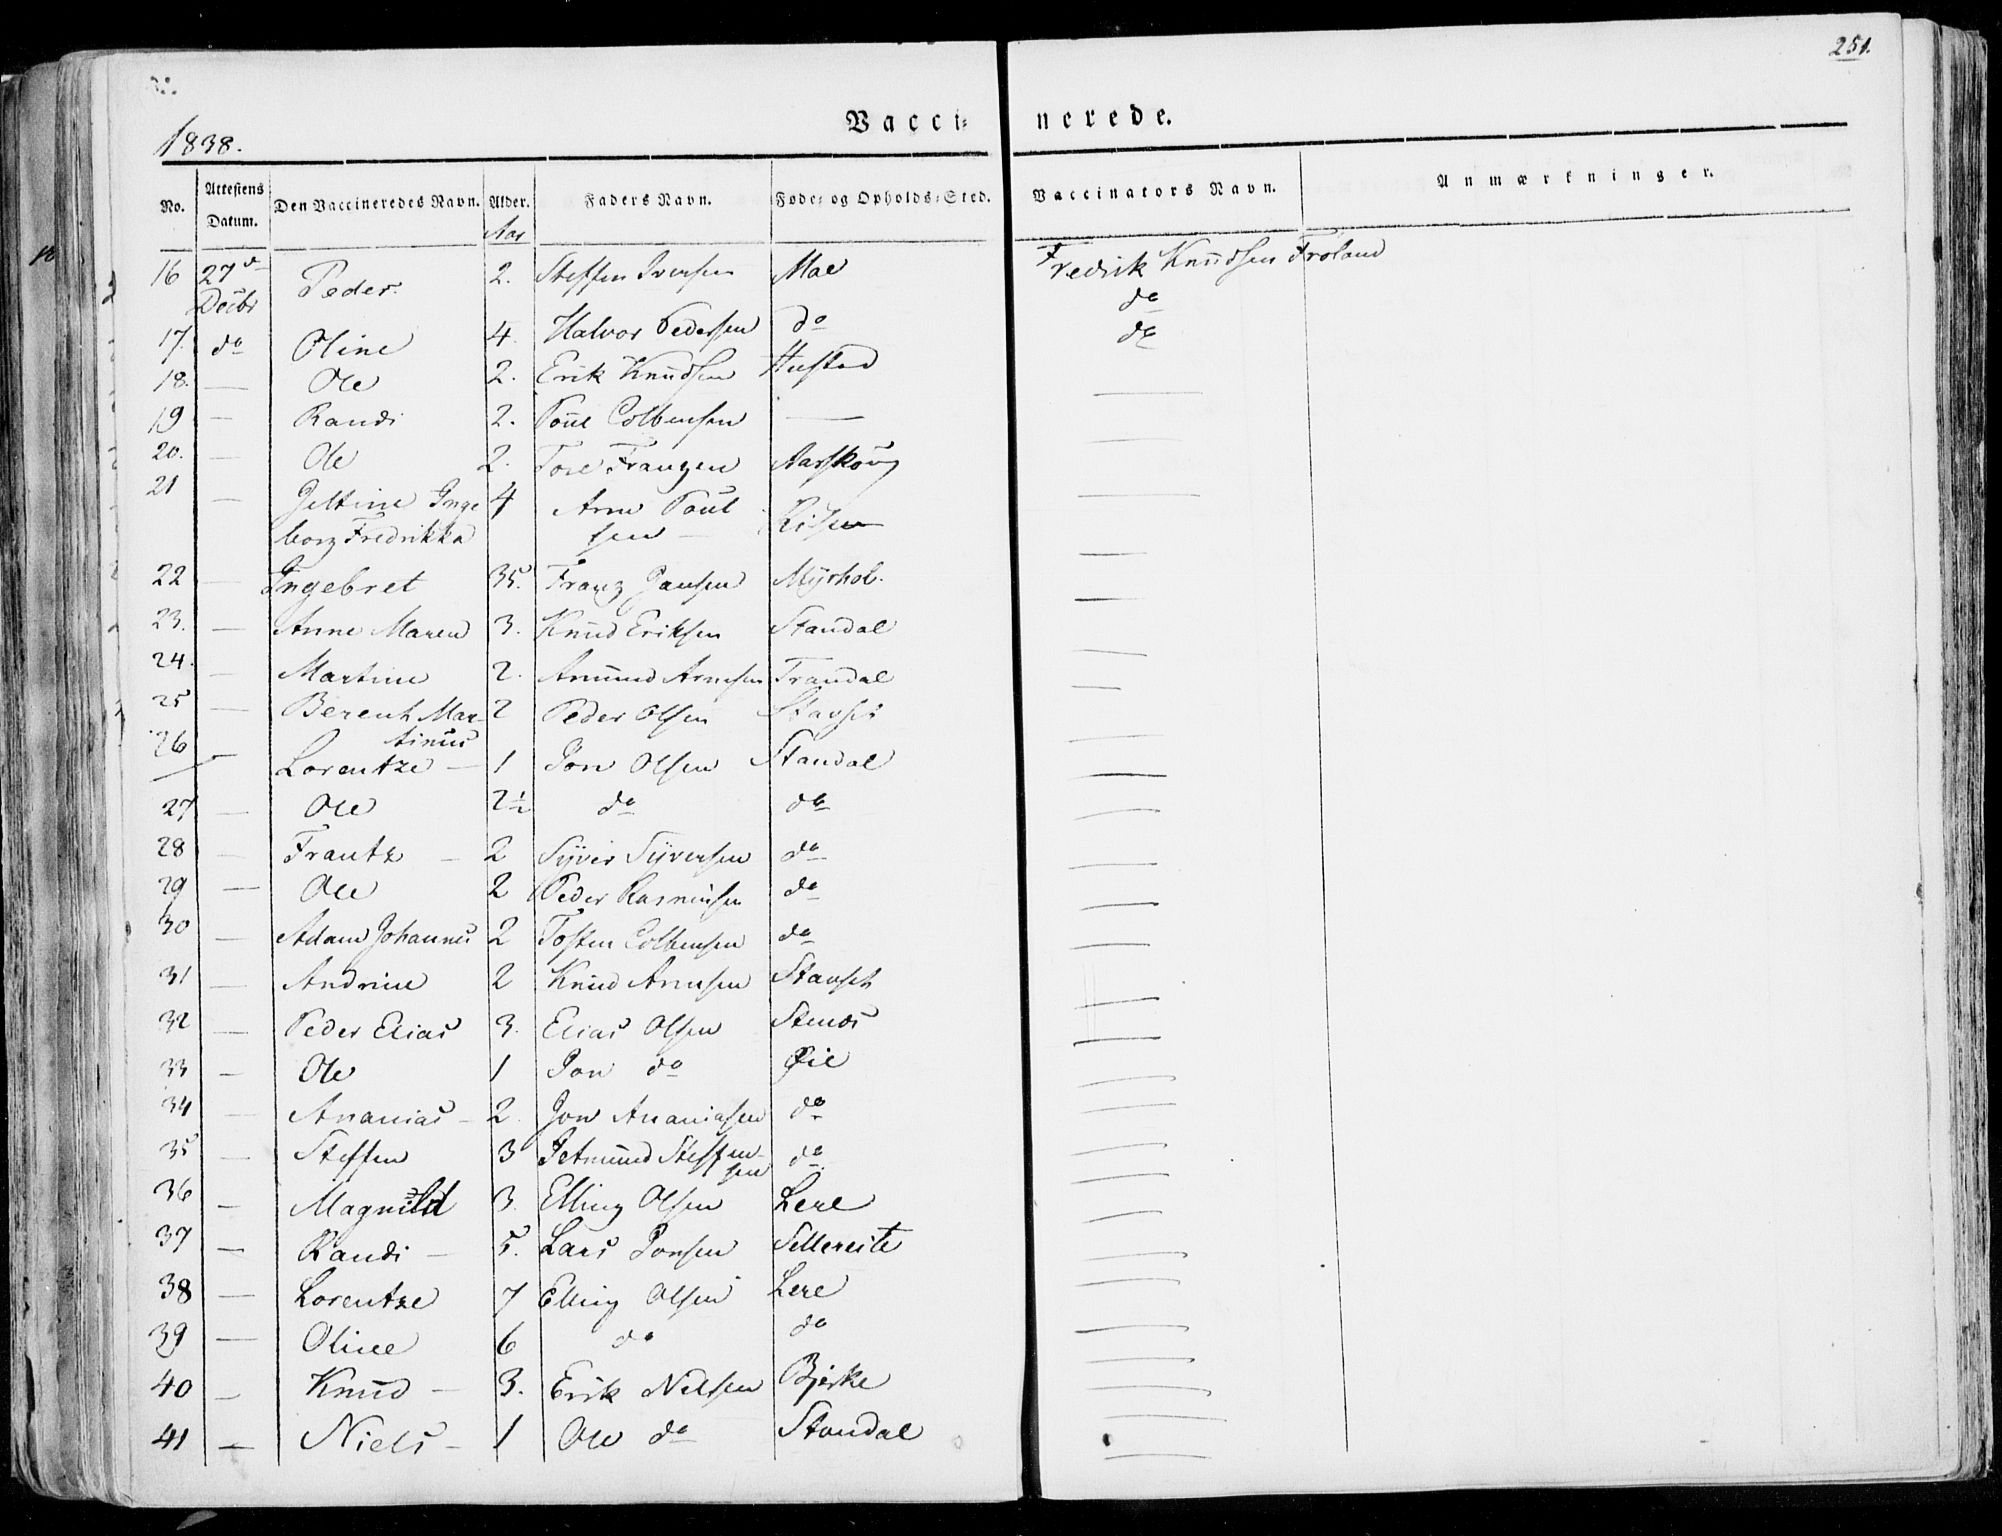 251.
Vacci= nerede.
1838.
No. Attestens Datum. Den Vaccineredes Navn. Alder. Faders Navn. Føde= og Opholds=Sted. Vaccinators Navn. Anmærkninger.
Aar
16 27d Decbr Peder. 2. Steffen Iversen Mae Fredrik Knudsen Froland
do
17. do Oline 4. Halvor Pedersen do do
18. — Ole 2. Erik Knudsen Hustad —
19 — Randi 2. Poul Colbensen — —
20. — Ole 2. Tore Franzen Aarskoug —
21 — Jettine Inge 4 Arne Poul Risen —
borg Fredrikka sen —
22 — Ingebret 35. Franz Jansen Myrhol. —
23. — Anne Maren 3. Knud Eriksen Standal —
24. — Martine 2. Amund Arnesen Trandal —
25 — Berent Mar- 2 Peder Olsen Stavset —
tinus
26 — Lorentze — 1 Jon Olsen Standal —
27 — Ole 2½ do do —
28 — Frantz — 2 Syver Syversen do —
29 — Ole 2 Peder Rasmusen do —
30 — Adam Johannes 2 Tosten Colbensen do —
31 — Andrine 2 Knud Arnesen Stavset —
32 — Peder Elias 3. Elias Olsen Stenes —
33 — Ole 1 Jon do Øie —
34 — Ananias — 2. Jon Ananiasen do —
35 — Steffen 3 Jetmund Steffen- do —
sen
36 — Magnild 3. Elling Olsen Lere —
37 — Randi — 5. Lars Jonsen Sellereite —
38 — Lorentze 7 Elling Olsen Lere —
39 — Oline 6 do do —
40 — Knud — 3. Erik Nilsen Bjerke —
41 — Niels — 1 Ole do Standal —